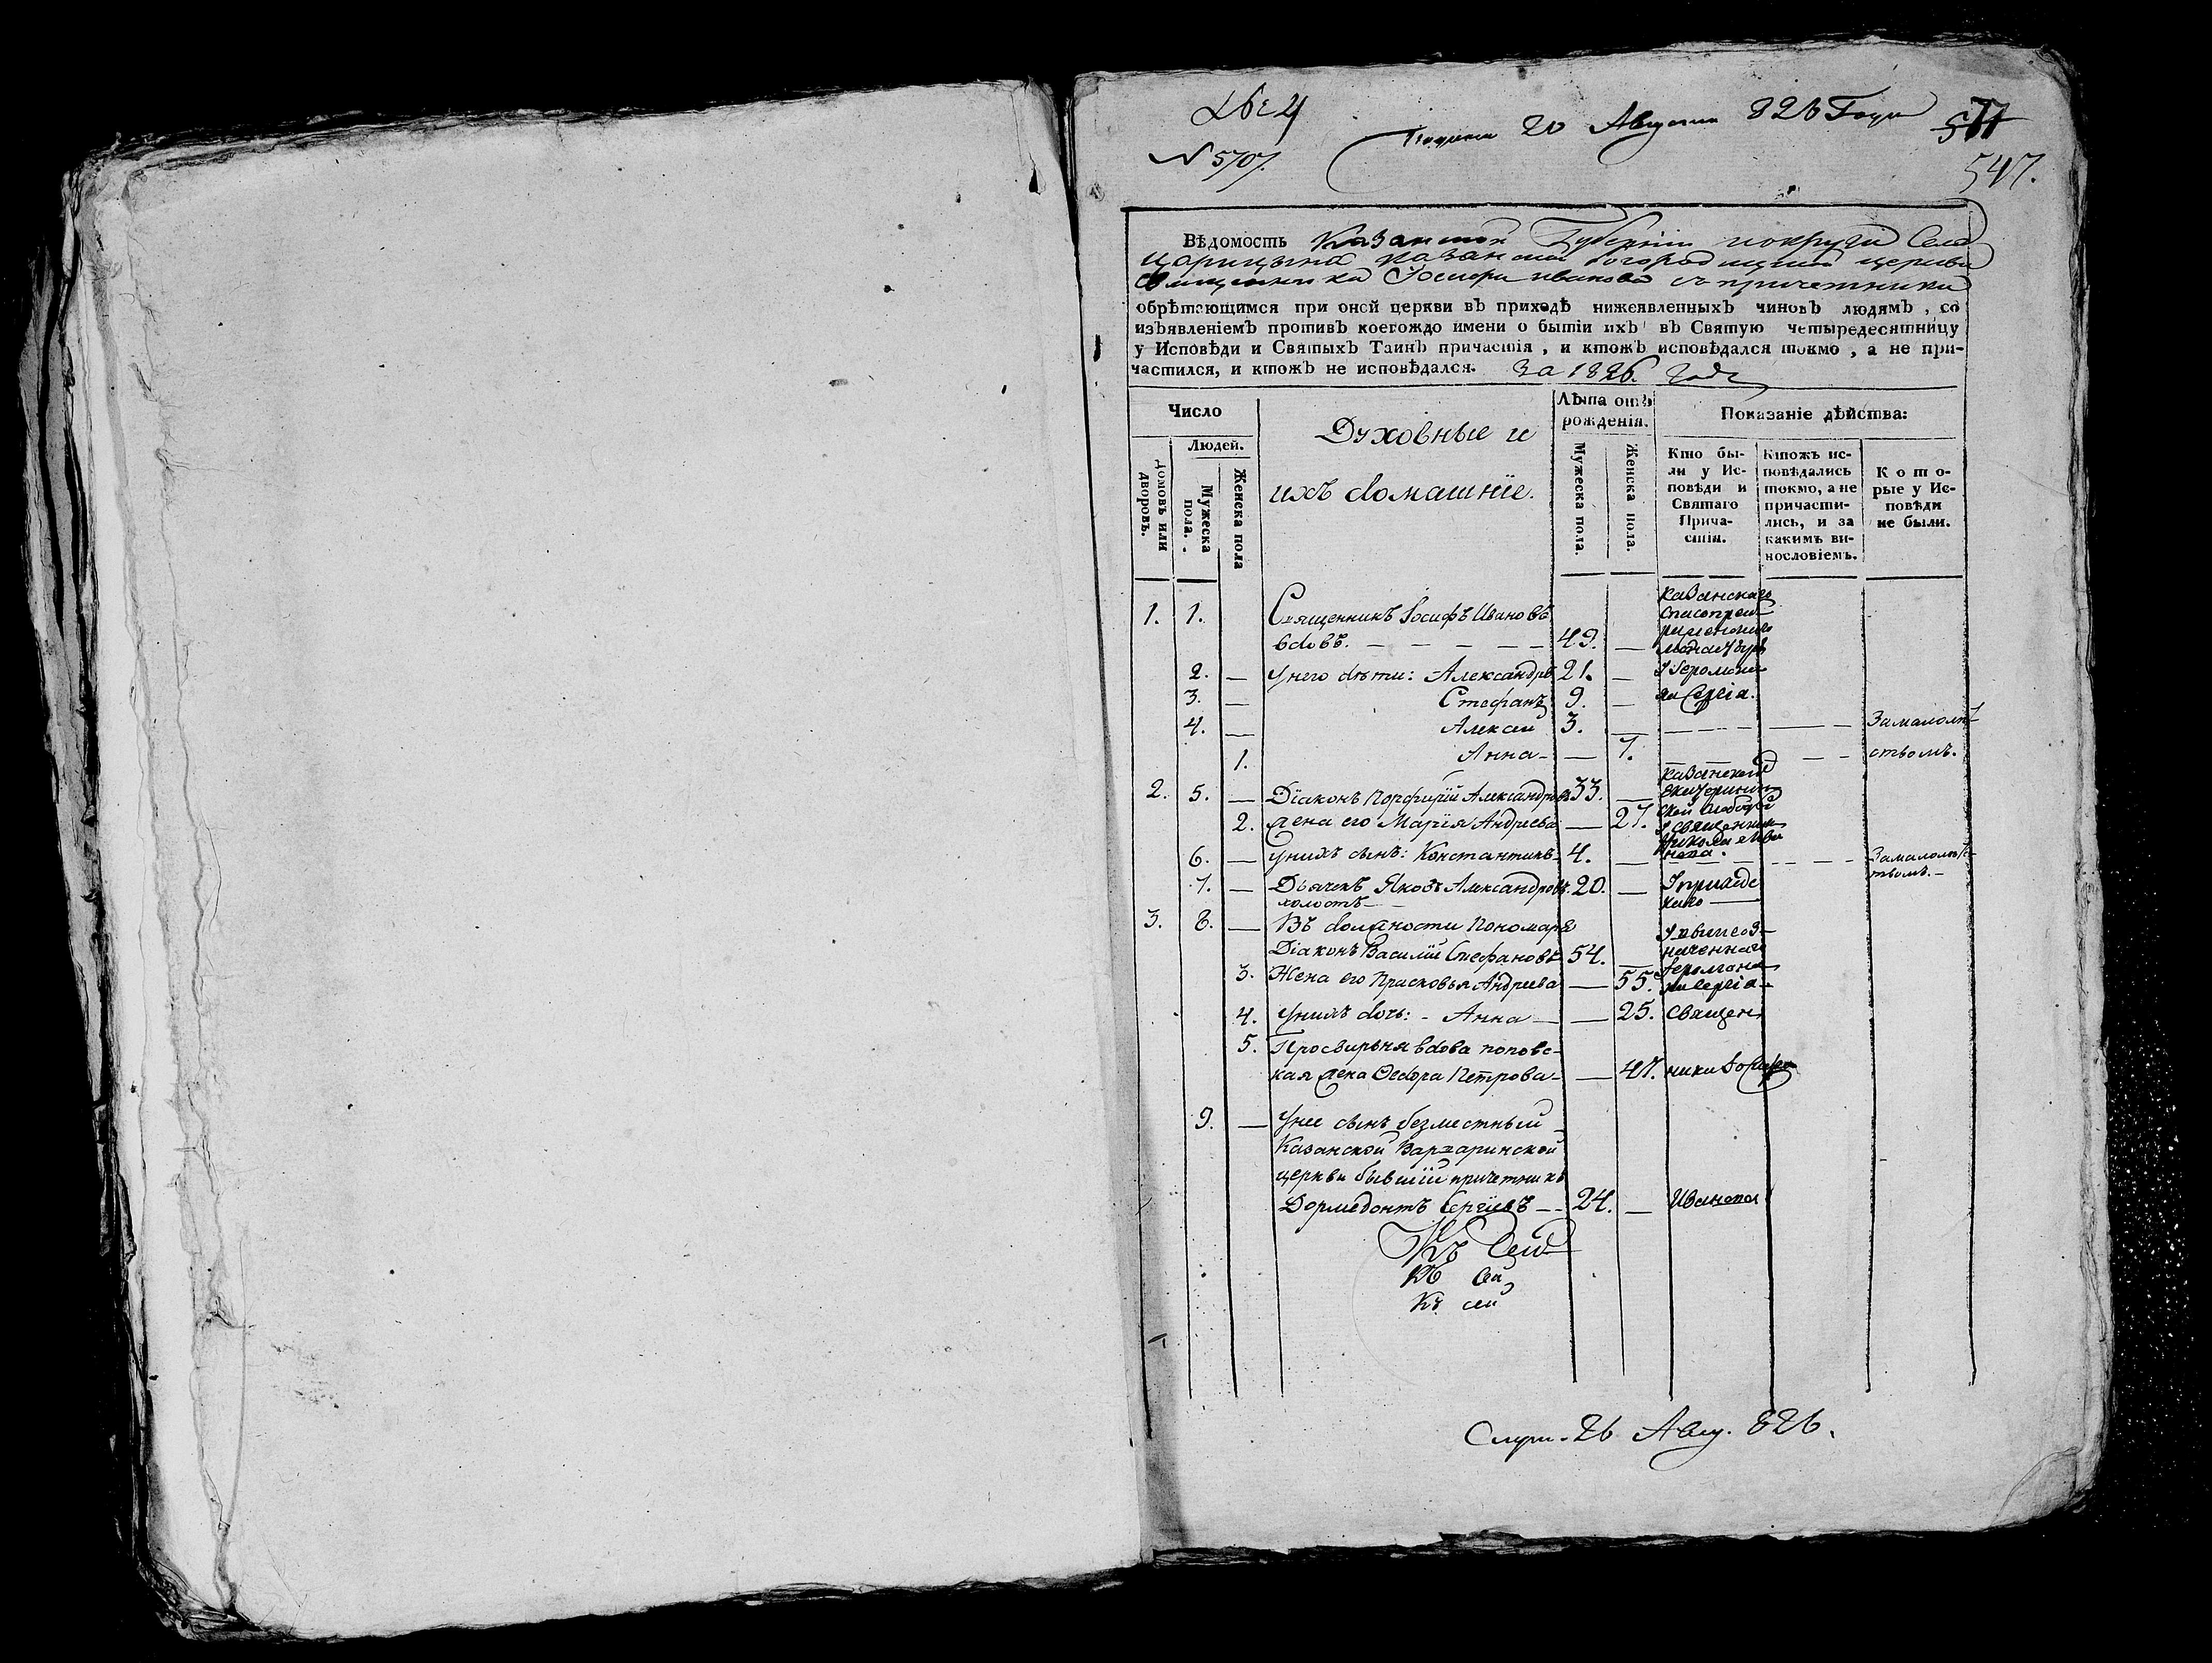 № 5707.
Подана 20 Августа 826 Года
577
547.
Вѣдомость Казанской Губерніи и округи Села
Царицына Казанской Богородицкой церкви
Священника Іосифа Иванова съ причетники
обрѣтающимся при оной церкви въ приходѣ нижеявленныхъ чиновъ людямъ, со
изъявленіемъ противъ коегождо имени о бытіи ихъ въ Святую четыредесятницу
у Исповѣди и Святыхъ Таинъ причастія, и ктожъ исповѣдался токмо, а не при-
частился, и ктожъ не исповѣдался. За 1826. годъ
Число
Людей.
домовъ или дворовъ.
Мужеска пола.
Женска пола
Духовные и
ихъ домашніе.
Лѣта отъ
рожденія.
Мужеска пола.
Женска пола.
Показаніе дѣйства:
Кто бы-
ли у Ис-
повѣди и
Святаго
Прича-
стія.
Ктожъ ис-
повѣдались
токмо, а не
причасти-
лись, и за
какимъ ви-
нословіемъ.
Кото-
рые у Ис-
повѣди
не были.
1. 1. Священникъ Іосифъ Ивановъ
вдовъ. — — — — — 49. —
Казанскаго
Спасопрео-
монастыря
Іеромона-
ха Сергія.
2. — У него дѣти: Александръ 21. —
3. — Стефанъ 9. —
4. — Алексей 3. — Замалолѣт-
1. Анна — — 7. ствомъ.
2. 5. — Діаконъ Порфирій Александровъ 33. —
2. Жена его Марія Андреева — 27.
Казанской
Екатеринин
ской слободы
У священника
Николая Ива
нова.
6. — У нихъ сынъ: Константинъ 4. — Замалолѣт-
ствомъ. —
7. — Дьячекъ Яковъ Александровъ 20. —
холостъ —
3. 8. — Въ должности Пономаря
Діаконъ Василій Стефановъ 54. —
3. Жена его Прасковья Андреева — 55.
У вышеоз-
наченнаго
Іеромона-
ха Сергія
4. У нихъ дочь: - Анна — — 25. Священ
5. Просвирьня вдова поповс-
кая жена Ѳедора Петрова — — 47. ника Іосифа
9. — У нее сынъ безместный
Казанской Варваринской
церкви бывшій причетникъ
Дормедонтъ Сергіевъ — — 24. — Иванова
Къ Сей
Къ Сей
Къ сей
26 Авгу. 826.